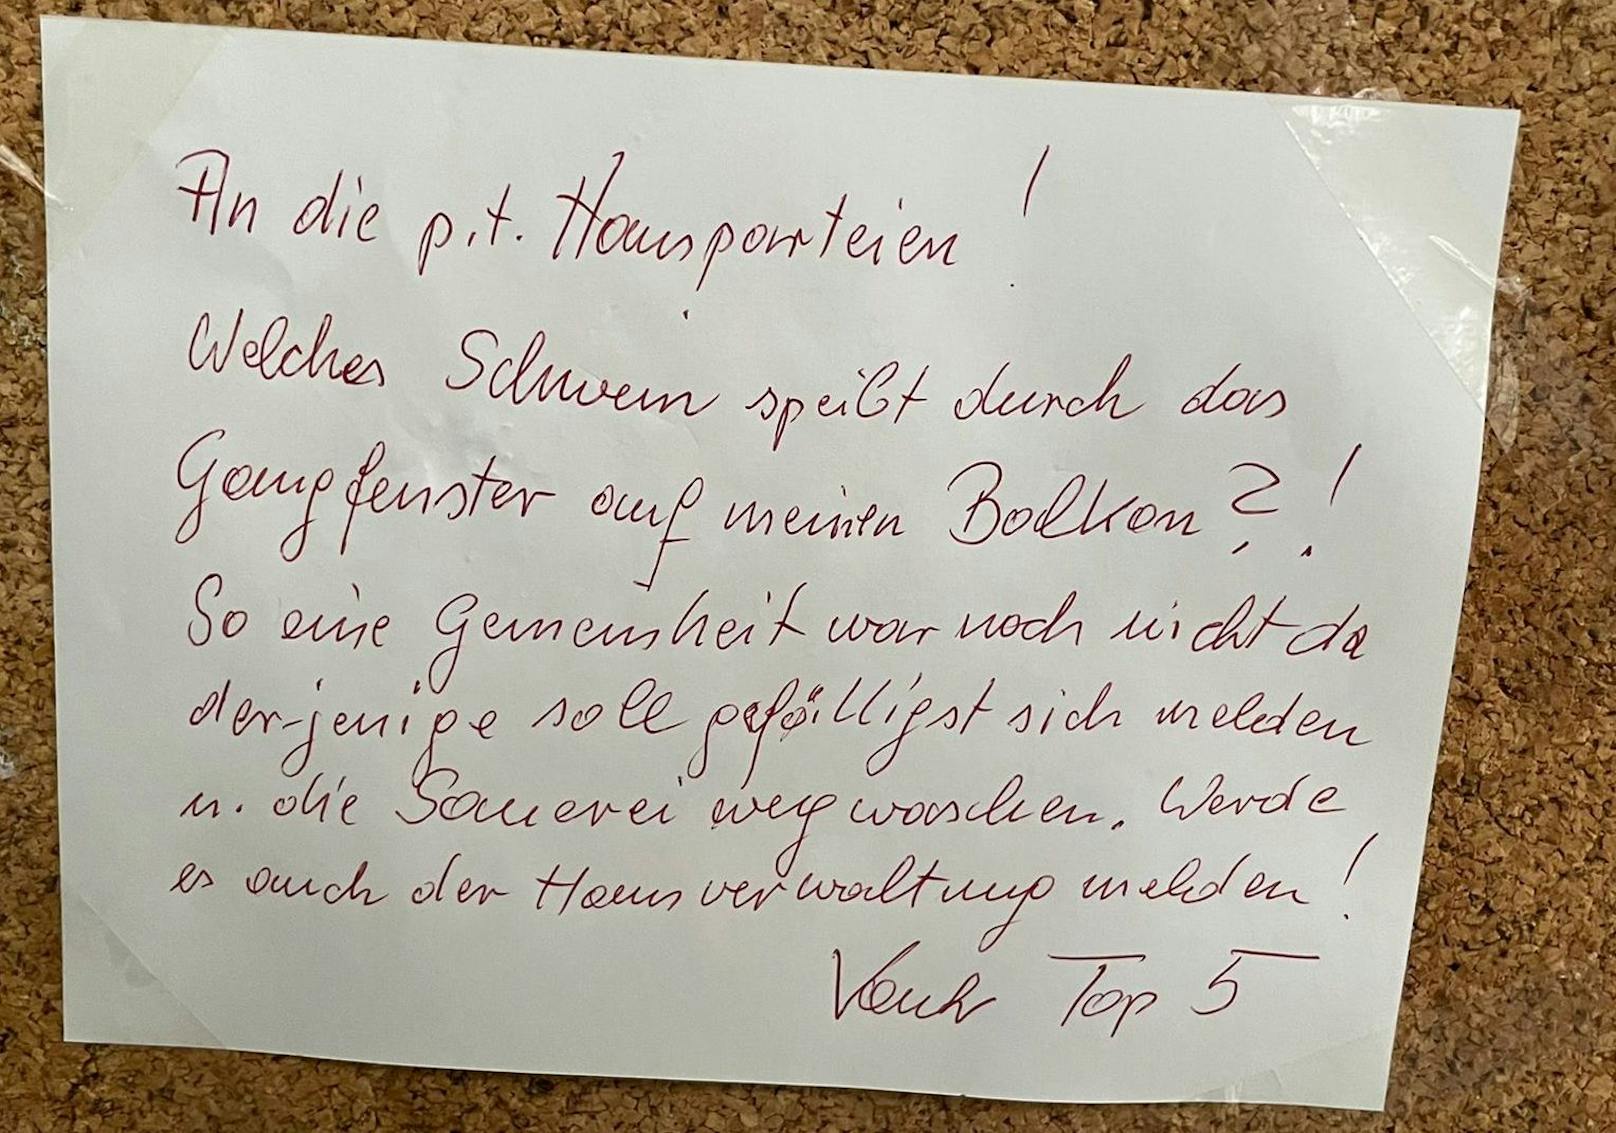 An die p.t. Hausparteien!
Welches Schwein speibt durch das
Gangfenster auf meinen Balkon?!
So eine Gemeinheit war noch nicht da
der-jenige soll gefälligst sich melden
u. die Sauerei wegwaschen. Werde
es auch der Hausverwaltung melden!
Top 5